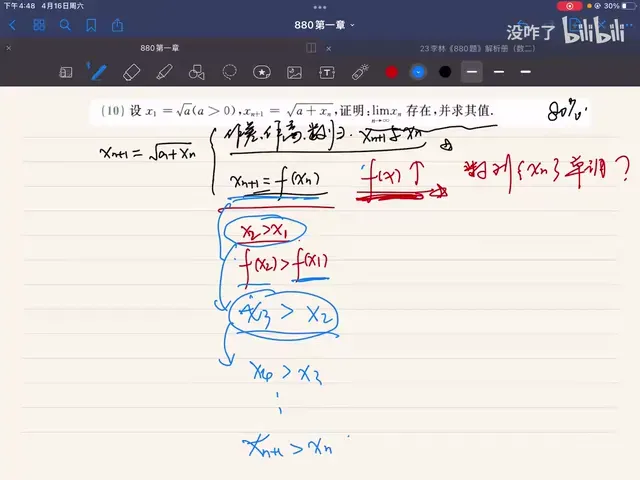 下午4:48 4月16日周六
30%
没咋了 bilibili
880第一章
880第一章
23学林《880题》解析册(数二)
(10) 设 x₁ = √a (a > 0), xₙ₊₁ = √(a + xₙ), 证明: lim(n→∞) xₙ 存在, 并求其值.
80%.
作差、作商、数归. xₙ₊₁与xₙ
xₙ₊₁ = √(a+xₙ)
xₙ₊₁ = f(xₙ) f(x)↑ 数列{xₙ}单调?
x₂ > x₁
f(x₂) > f(x₁)
x₃ > x₂
x₄ > x₃
⋮
xₙ₊₁ > xₙ